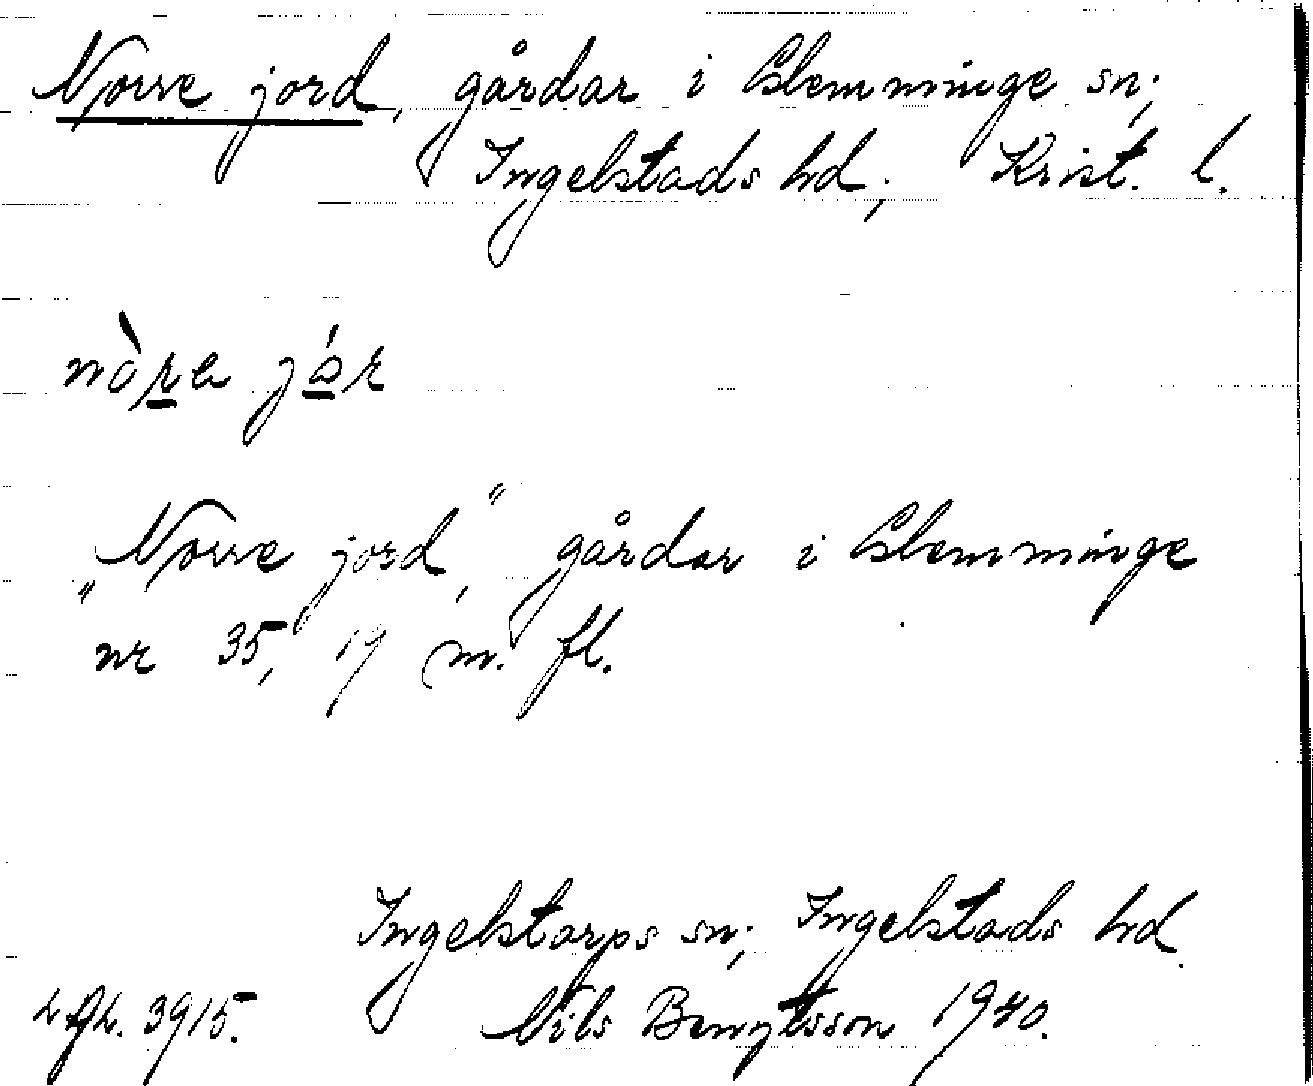 Norre jord, gårdar i Glemminge sn;
Ingelstads hd; Krist. l.
nòra jór
"Norre jord," gårdar i Glemminge
nr 35, 19 m. fl.
Ingelstorps sn; Ingelstads hd.
3915. Nils Bengtsson 1940.